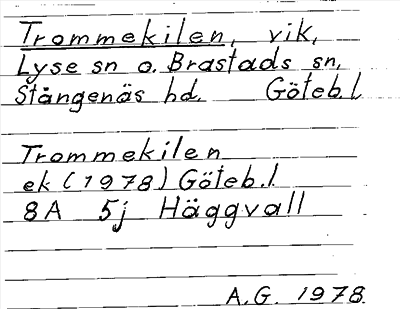 Trommekilen, vik,
Lyse sn o. Brastads sn,
Stångenäs hd. Göteb.l
Trommekilen
ek (1978) Göteb.l.
8A 5j Häggvall
A.G. 1978